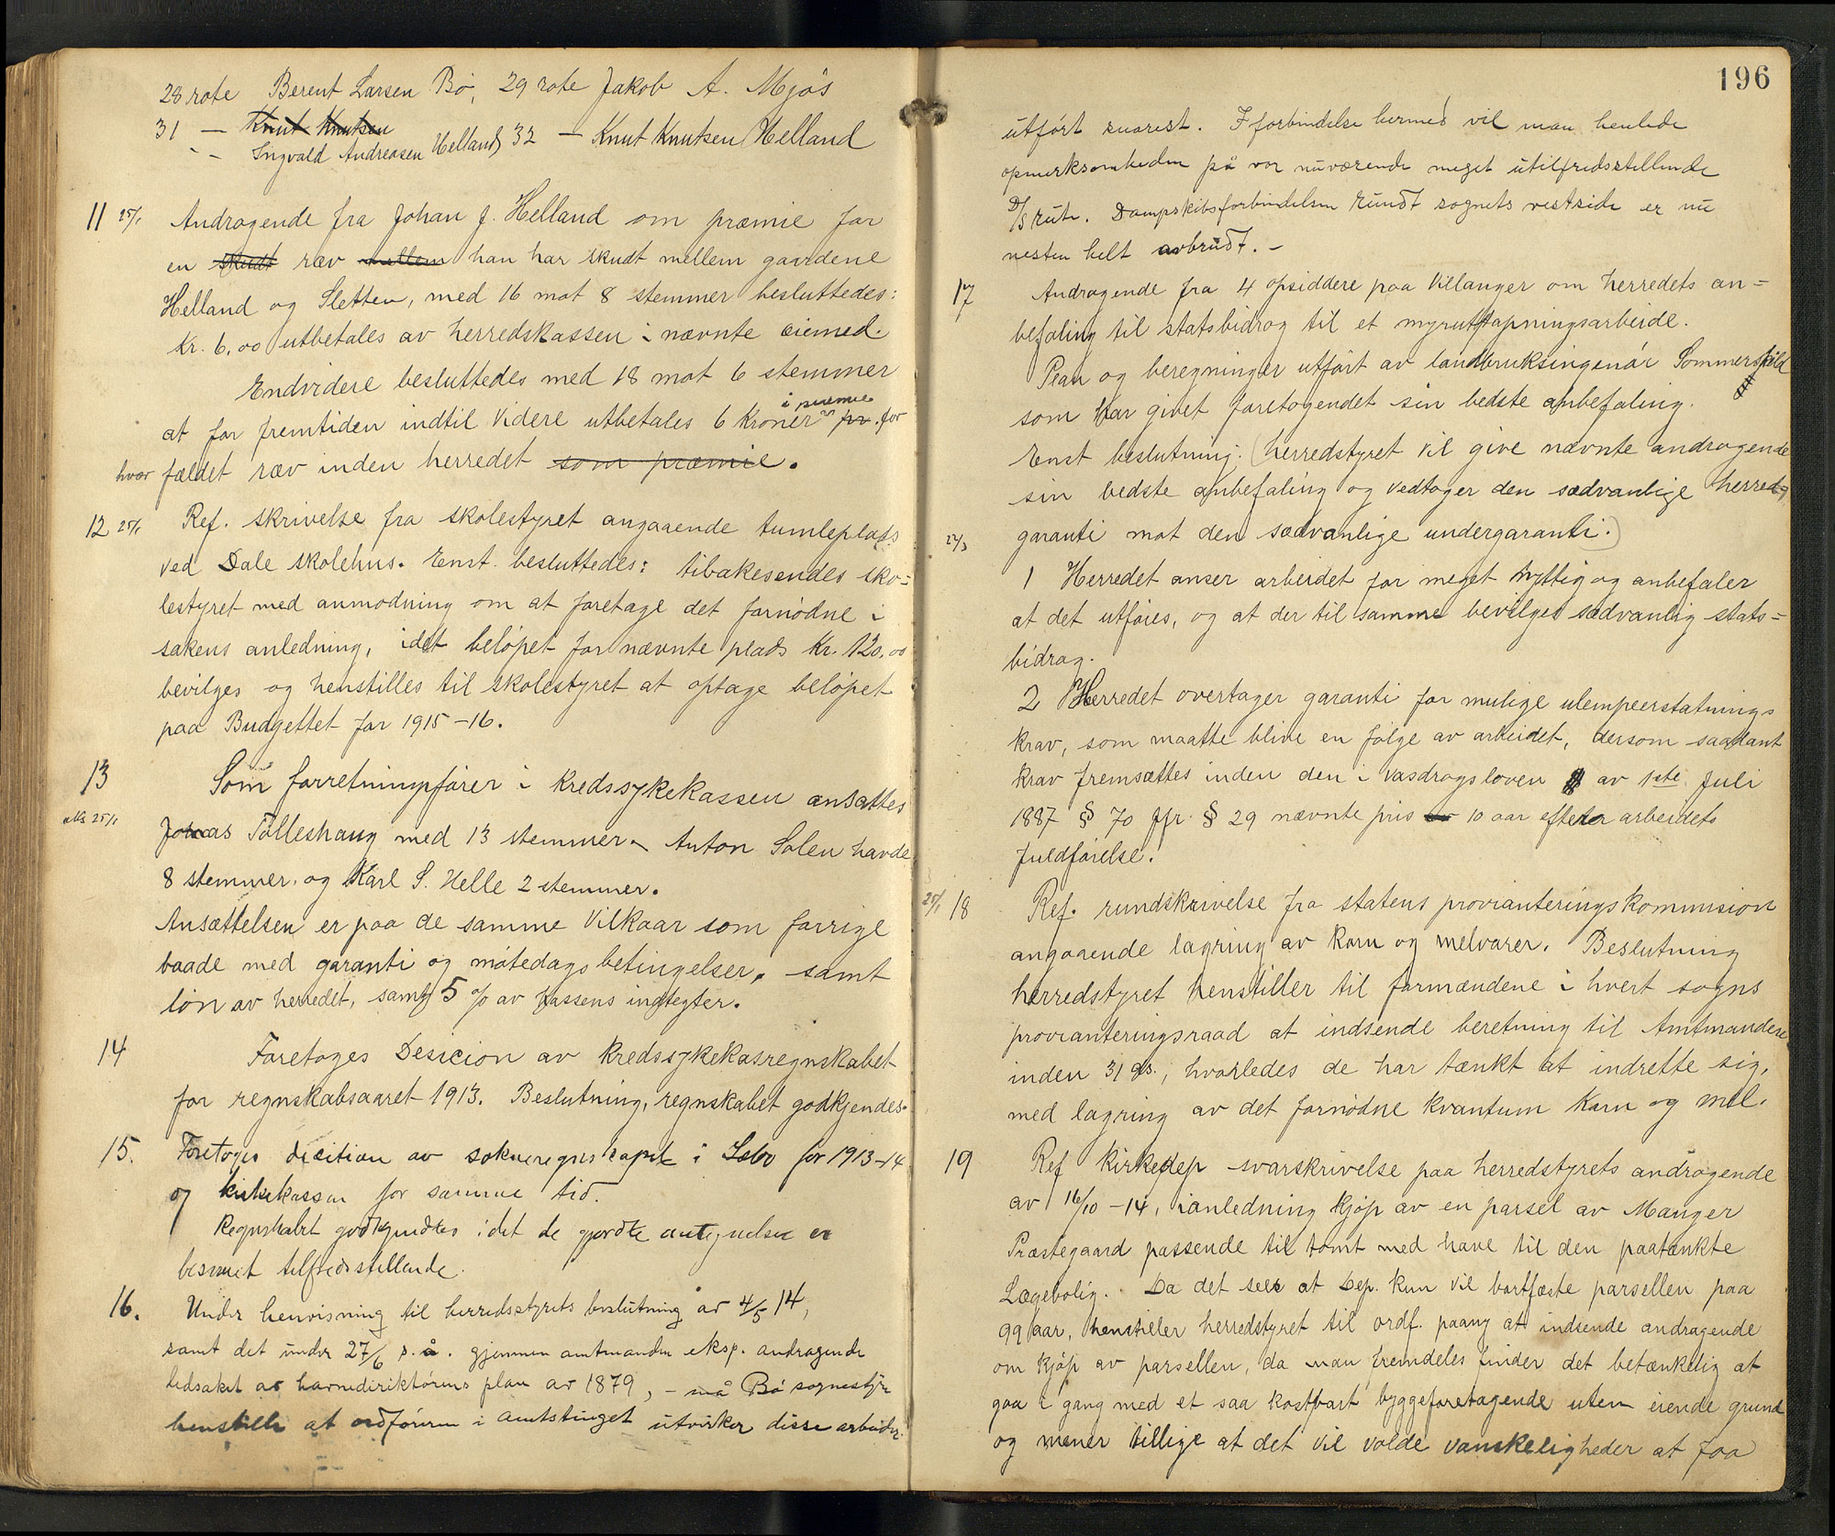 28 rote Berent Larsen Bö, 29 rote Jakob A. Mjös
31 — Knut Knutsen
- — Ingvald Andreasen Helland, 32 — Knut Knutsen Helland
11 25/1 Andragende fra Johan J. Helland om præmie for
en skudt ræv mellem han har skudt mellem gardene
Helland og Sletten, med 16 mot 8 stemmer besluttedes:
Kr. 6,00 utbetales av herredskassen i nævnte øiemed.
Endvidere besluttedes med 18 mot 6 stemmer
i præmie
at for fremtiden indtil videre utbetales 6 kroner pr. for
hver fældet ræv inden herredet som præmie.
12 25/1 Ref. skrivelse fra skolestyret angaaende tumleplads
ved Dale skolehus. Enst. besluttedes: tibakesendes sko=
lestyret med anmodning om at foretage det fornødne i
sakens anledning, idet beløpet for nævnte plads Kr. 120,00
bevilges og henstilles til skolestyret at optage beløpet
paa Budgettet for 1915-16.
13 Som forretningsfører i Kredssykekassen ansattes
25/1 Johas Tolleshaug med 13 stemmer. Anton Solen havde
8 stemmer, og Karl S. Helle 2 stemmer.
Ansættelsen er paa de samme Vilkaar som forrige
baade med garanti og møtedagsbetingelser, samt
løn av herredet, samt 5 % av kassens indtegter.
14 Foretoges Desicion av kredssykekasregnskabet
for regnskabsaaret 1913. Beslutning, regnskabet godkjendes.
15. Foretoges dicition av sokneregnskapet i Sæbø for 1913-14
og kirkekassen for samme tid.
Regnskabet godkjendtes idet de gjordte antegnelser er
besvaret tilfredsstillende.
16. Under henvisning til herredsstyrets beslutning av 4/5 14,
samt det under 27/6 s.å. gjennem amtmanden eksp. andragende
ledsaket av havnedirektörens plan av 1879, - må Bö sognestyre
henstille at ordföreren i Amtstinget utvirker disse arbeider
196
utfört snarest. I forbindelse hermed vil man henlede
opmerksomheden på vor nuværende meget utilfredsstillende
D/S rute. Dampskibsforbindelsen rundt sognets vestside er nu
nesten helt avbrudt. -
17 Andragende fra 4 opsiddere paa Villanger om herredets an=
befaling til statsbidrag til et myruttapningsarbeide.
Plan og beregninger utført av landbruksingenør Sommerschild
som har givet foretagendet sin bedste anbefaling.
Enst beslutning: (herredstyret vil give nævnte andragende
sin bedste anbefaling og vedtager den sædvanlige herreds
27/3 garanti mot den sædvanlige undergaranti.)
1 Herredet anser arbeidet for meget nyttig og anbefaler
at det utføres, og at der til samme bevilges sædvanlig stats=
bidrag.
2 Herredet overtager garanti for mulige ulempeerstatnings
krav, som maatte blive en følge av arbeidet, dersom saadant
krav fremsættes inden den i vasdragsloven av 1ste Juli
1887 § 70 jfr. § 29 nævnte pris 10 aar efter arbeidets
fuldførelse.
25/1 18 Ref. rundskrivelse fra statens provianteringskommision
angaaende lagring av korn og melvarer. Beslutning
herredstyret henstiller til formændene i hvert sogns
provianteringsraad at indsende beretning til Amtmanden
inden 31 ds., hvorledes de har tænkt at indrette sig,
med lagring av det fornødne kvantum korn og mel.
19 Ref kirkedep svarskrivelse paa herredstyrets andragende
av 16/10 -14, ianledning kjøp av en parsel av Manger
Præstegaard passende til tomt med have til den paatænkte
Lægebolig. Da det sees at Dep. kun vil bortfæste parsellen paa
99 aar, henstiller herredstyret til ordf. paany at indsende andragende
om kjøp av parsellen, da man fremdeles finder det betænkelig at
gaa i gang med et saa kostbart byggeforetagende uten eiende grund
og mener tillige at det vil volde vanskeligheder at faa